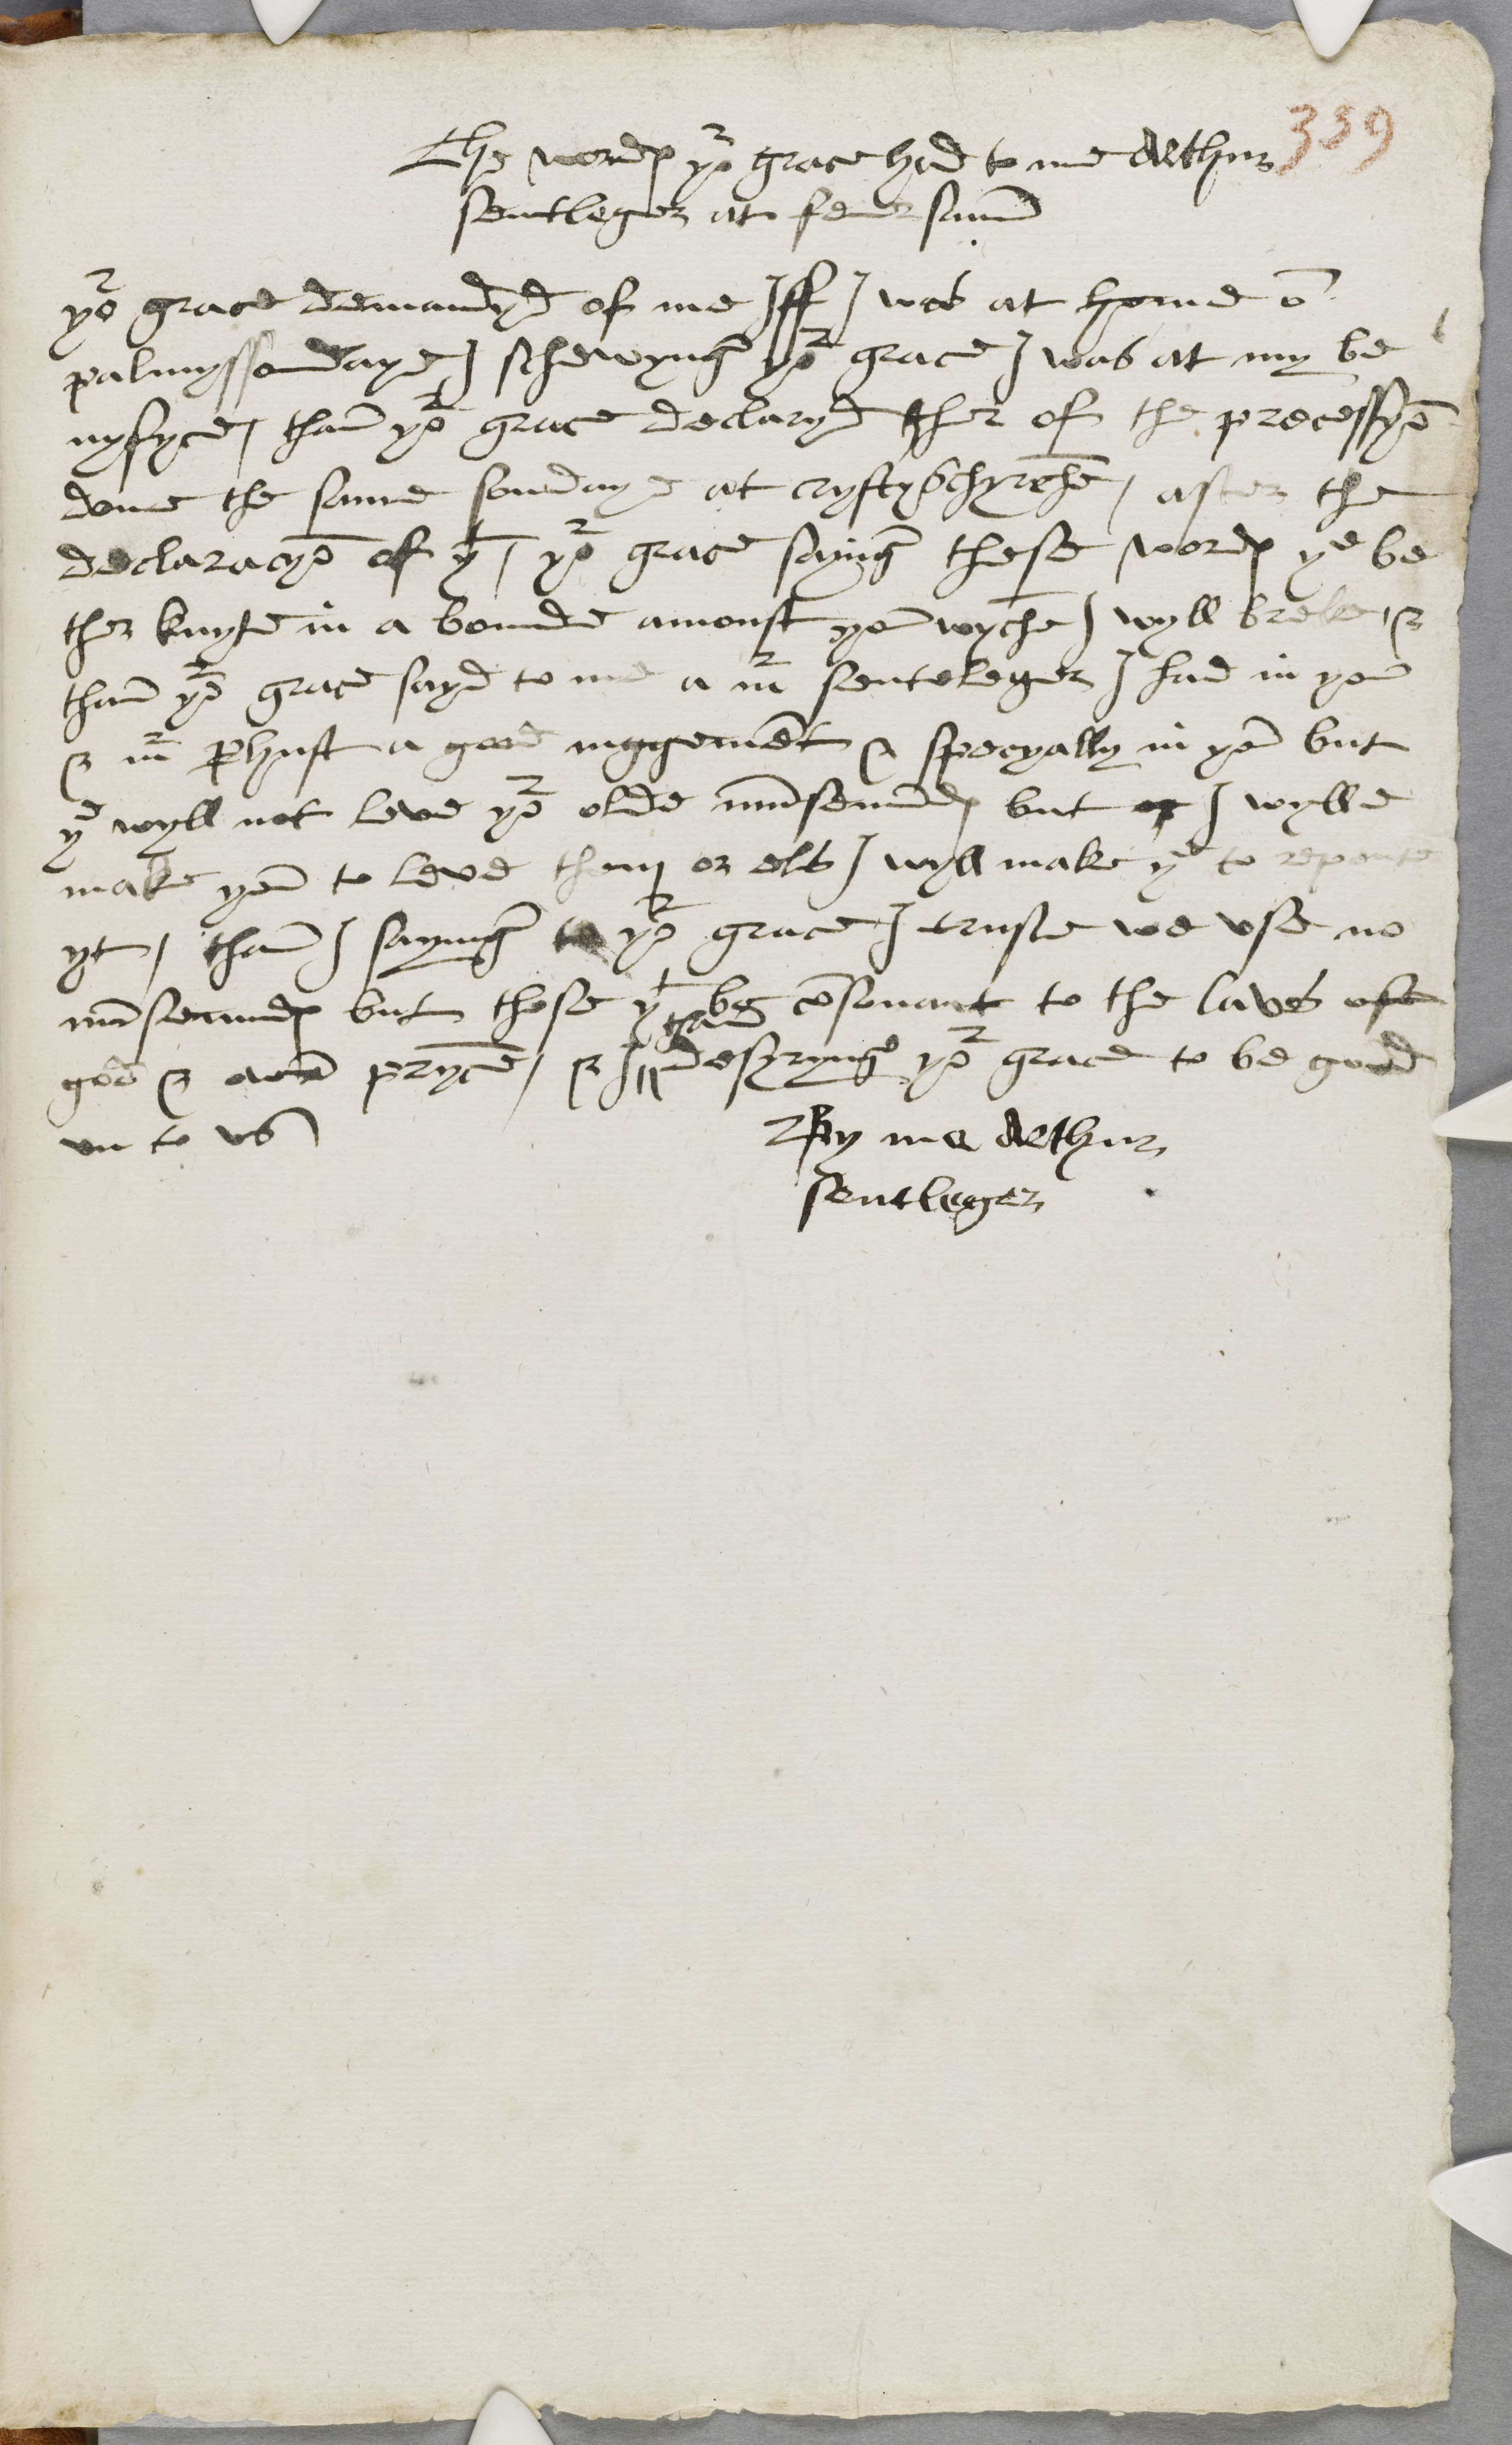 339
The wordes yor grace had to me Arthur
sentleger at feuersam
yor grace demandyd of me Iff I was at home ō
palmyssondaye I schewyng yor grace I was at my be
nyfyce, than yor grace declaryd ther of the precessyō
done the same sondaye at crystyschyrche, after the
declaracyō of yt, yor grace saying these wordes ye be
ther knyte in a bounde amonst you wyche I wyll breke, &
than yor grace sayd to me a mr senteleger I had in you
& mr perhust a good iuggemēt & specyally in you but
ye wyll not leve yor olde mumsemundes but I wylle
make you to leve them or els I wyll make ye to repente
yt, than I sayng to yor grace I truste we vse no
mumsemundes but those yt be cōsonant to the laws of
god & owr prynce, & I than desyryng yor grace to be good
vn to vs
By me Arthur
sentleger